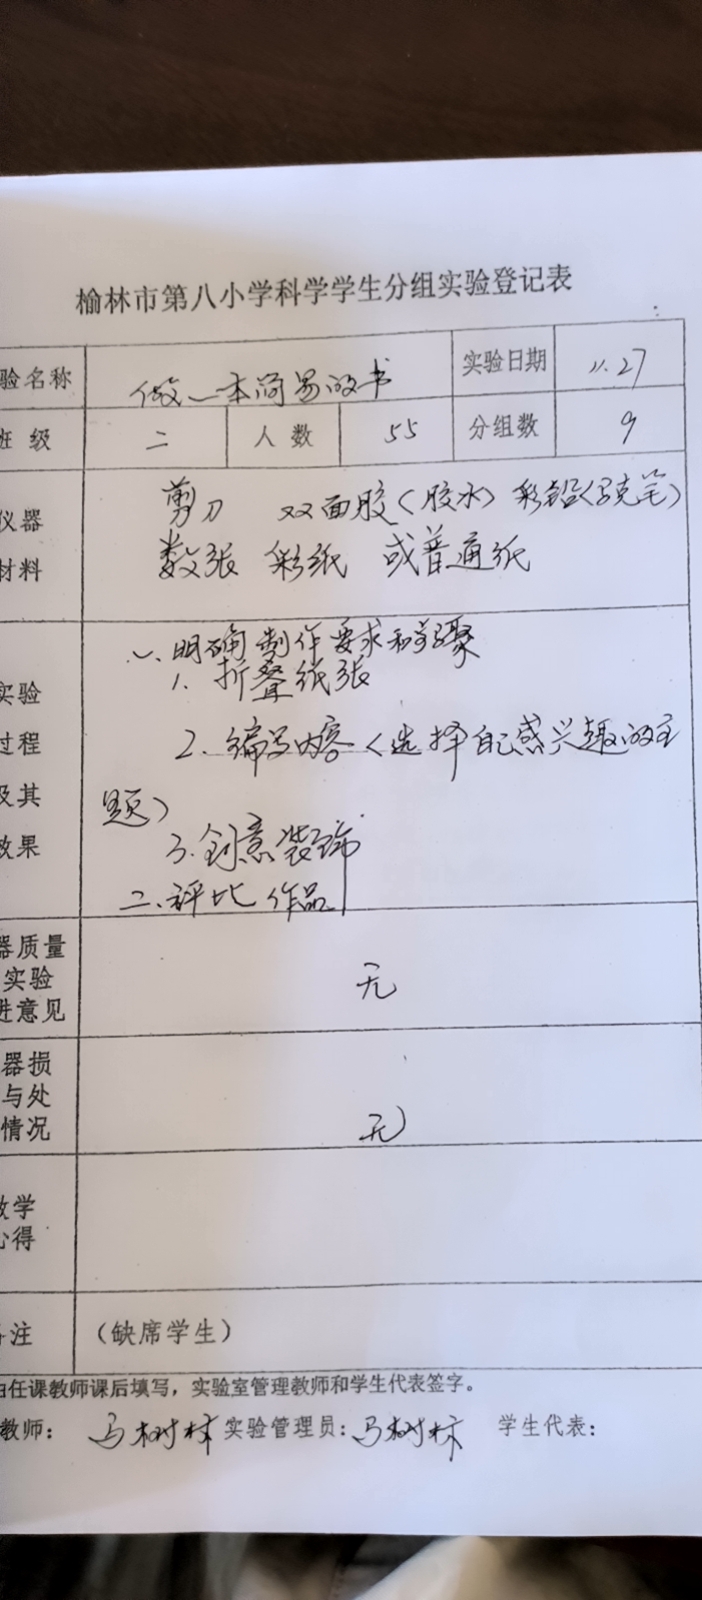 榆林市第八小学科学学生分组实验登记表
验名称 做一本简易的书 实验日期 11.27
班 级 二 人 数 55 分组数 9
仪器
材料
剪刀 双面胶（胶水）彩铅（马克笔）
数张 彩纸 或普通纸
实验
过程
及其
效果
一、明确制作要求和步骤
1. 折叠纸张
2. 编写内容（选择自己感兴趣的主
题）
3. 创意装饰
二、评比作品
器质量
实验
进意见
无
器损
与处
情况
无
教学
心得
备注 （缺席学生）
由任课教师课后填写，实验室管理教师和学生代表签字。
教师： 马树林 实验管理员：马树林 学生代表：